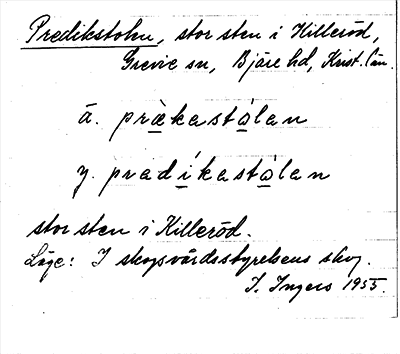 Predikstolen, stor sten i Killeröd,
Grevie sn, Bjäre hd, Krist. län.
ä. prækastolan
y. pradikastolan
stor sten i Killeröd.
Läge: I skogsvårdsstyrelsens skog.
I. Ingers 1955.